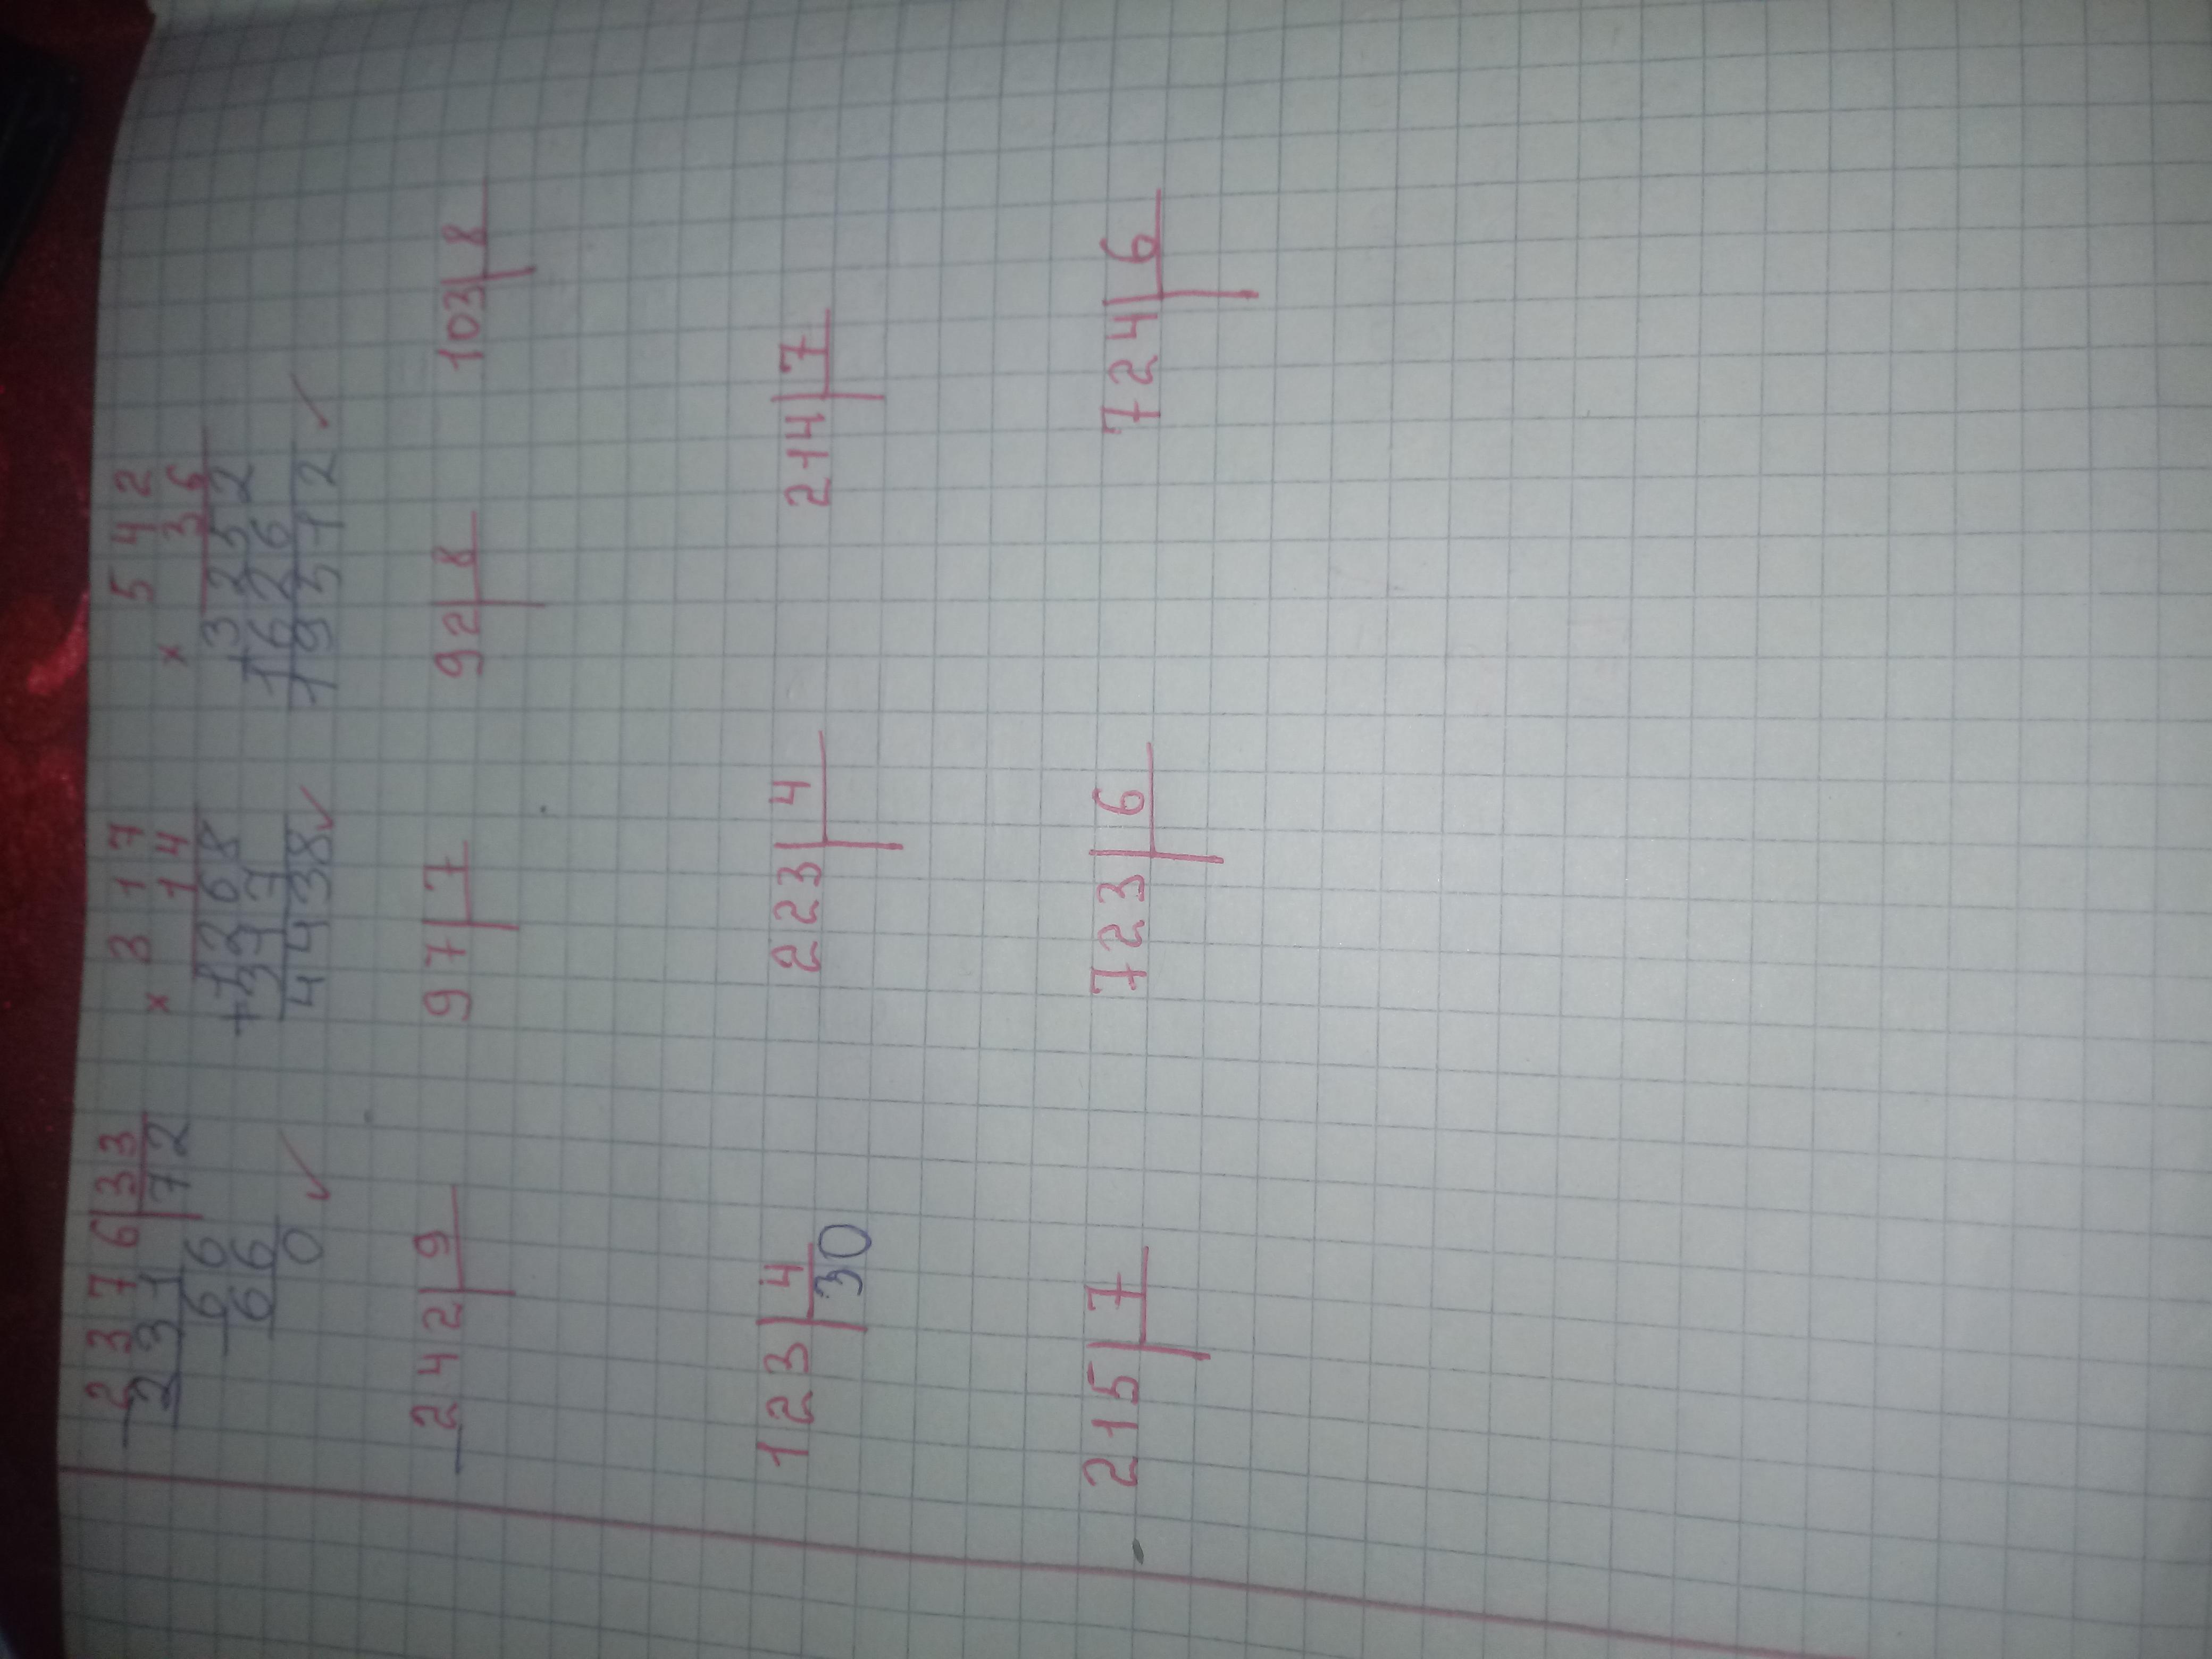 2376 33 × 317 × 542
231 72 14 36
66 1268 3252
66 +317 1626
0 ✓ 4438 ✓ 19512 ✓
242 9 97 7 92 8 103 8
123 4 223 4 214 7
30
215 7 723 6 724 6